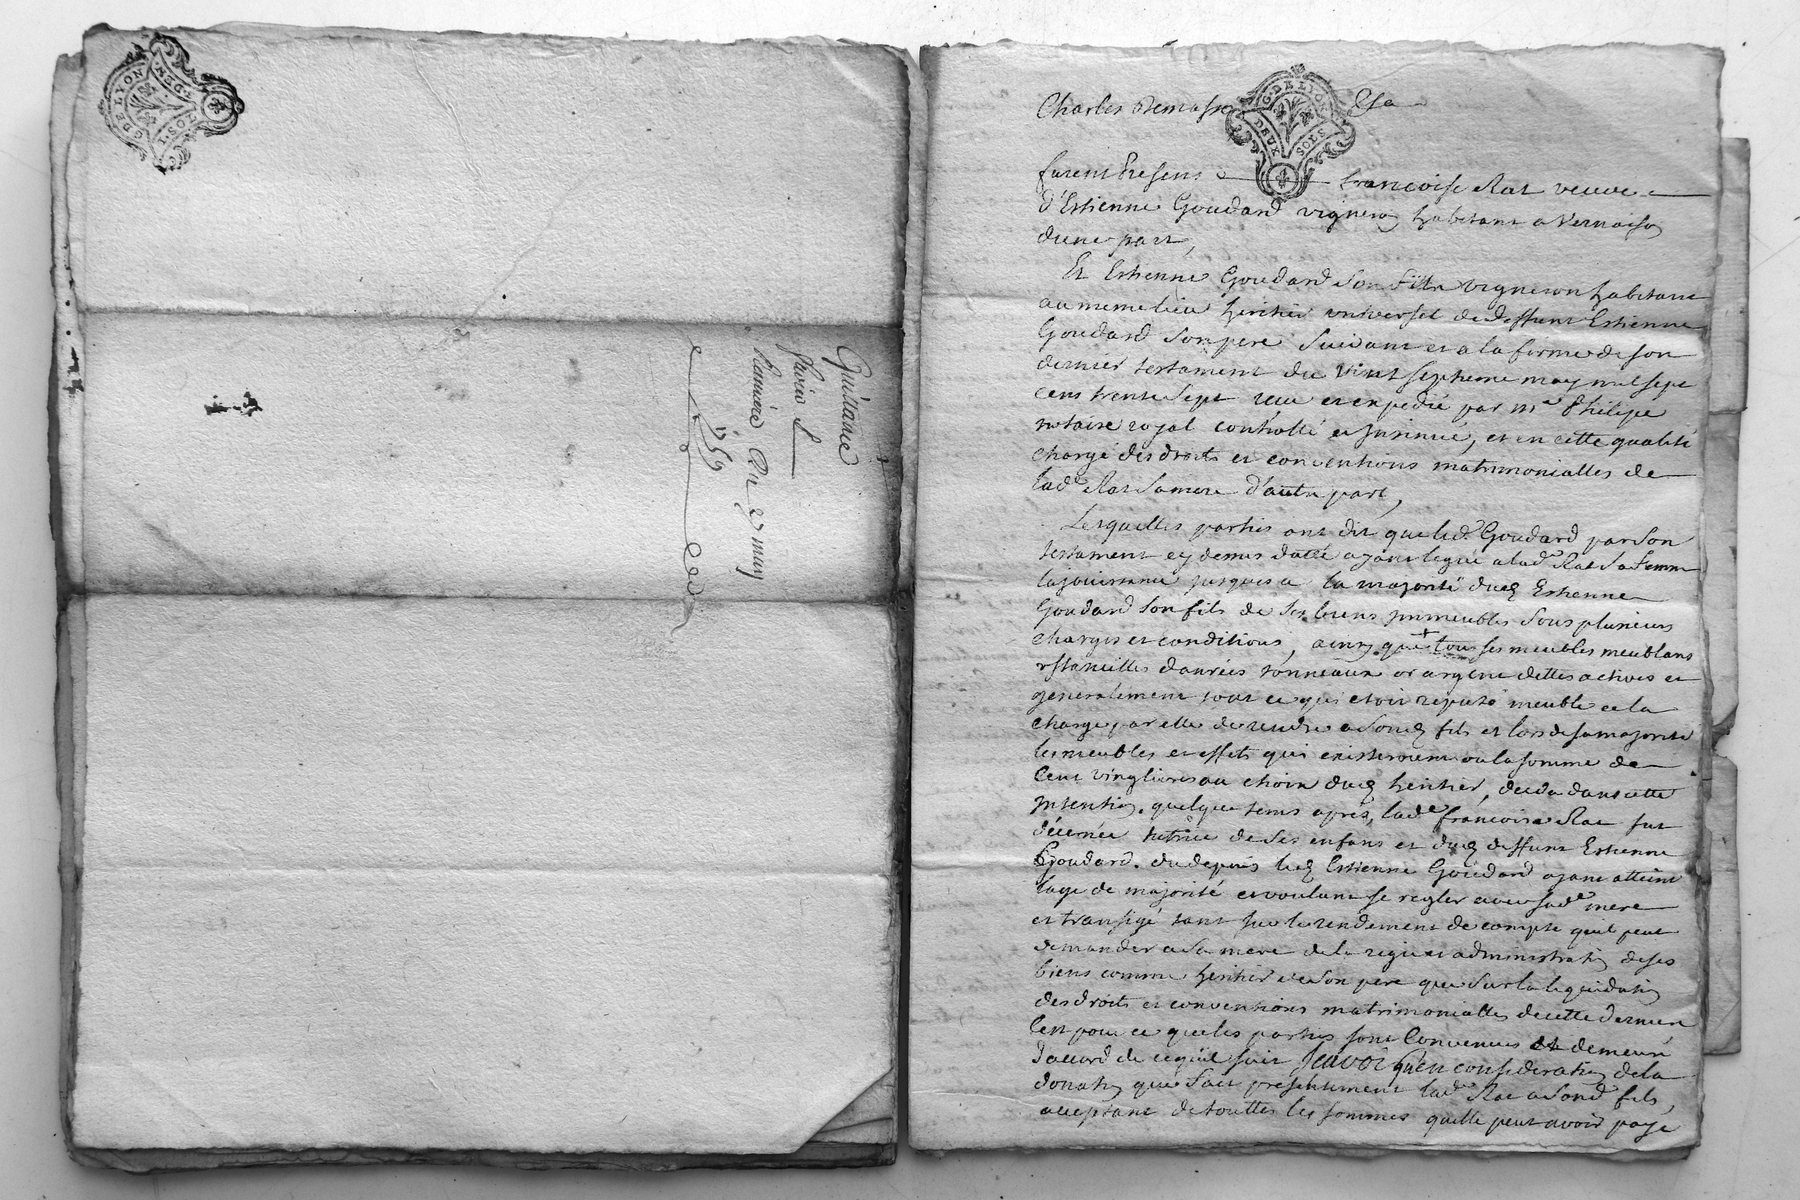 G. DE LYON
2 SOLS. P. DEN.
Quittance
Lamure Du 2 may
1759
Charles Demasso &a
G. DE LYON
DEUX SOLS
furent Presens francoise Rat veuve
d'Estienne Goudard vigneron habitant a Vernaison
dune part,
Et Estienne Goudard Son fils vigneron habitant
au meme lieu heritier universel de deffunt Estienne
Goudard Son pere Suivant et a la forme de son
dernier testament du vint septieme may mil sept
cens trente Sept receu et expedié par me Philipe
notaire royal controllé et Insinué, et en cette qualité
chargé des droits et conventions matrimonialles de
lade Rat Sa mere d'autre part,
Lesquelles parties ont dit que led. Goudard par Son
testament cy dessus datté ayant legué a lade Rat Sa femme
la jouissance jusques a la majorité dud Estienne
Goudard Son fils de Ses biens Immeubles Sous plusieurs
charges et conditions, ainsy que tous ses meubles meublans
danrées tonneaux or argent dettes actives et
generalement tout ce qui etoit reputé meuble a la
charge par elle de rendre a Sond fils et lors de sa majorité
les meubles et effets qui existeroient ou la somme de
Cent vingt livres au choix dud heritier, decedé dans cette
Intention. quelque tems après, lade francoise Rat fut
décernée tutrice de Ses enfans et dud deffunt Estienne
Goudard. du depuis led Estienne Goudard ayant atteint
lage de majorité et voulant se regler avec sade mere
et transigé tant sur le rendement de compte quil peut
demander a Sa mere de la regie et administration de ses
biens comme heritier de Son pere que Sur la liquidation
des droits et conventions matrimonialles de cette derniere
C'est pour ce que les parties sont Convenues et demeuré
d'accord de ce qui suit Scavoir qu'en consideration de la
donation que fait presentement lade Rat a Sond fils,
acceptant de touttes les sommes quelle peut avoir payé